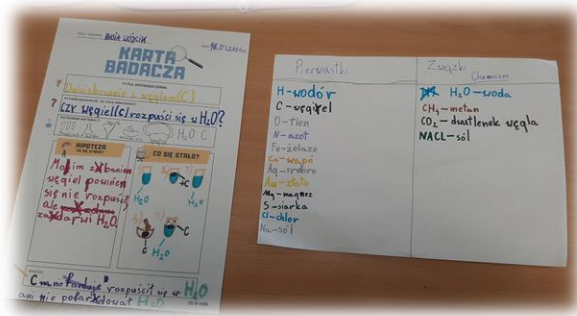 Basia Wójcik
KARTA
BADACZA
Doświadczenie z węglem(C)
Czy węgiel(C) rozpuści się w H₂O?
H₂O C
HIPOTEZA
CO SIĘ STAŁO?
Moim zdaniem
węgiel powinien
się nie rozpuścić
ale
zabarwi H₂O.
H₂O
H₂O
C
C
H₂O
C nie rozpuścił się w H₂O
ani nie pofarbował H₂O
Pierwiastki
H-wodór
C-węgiel
O-tlen
N-azot
Fe-żelazo
Ca-wapń
Ag-srebro
Au-złoto
Mg-magnez
S-siarka
Cl-chlor
Na-sól
Związki
Chemiczne
H₂O-woda
CH₄-metan
CO₂-dwutlenek węgla
NACL-sól